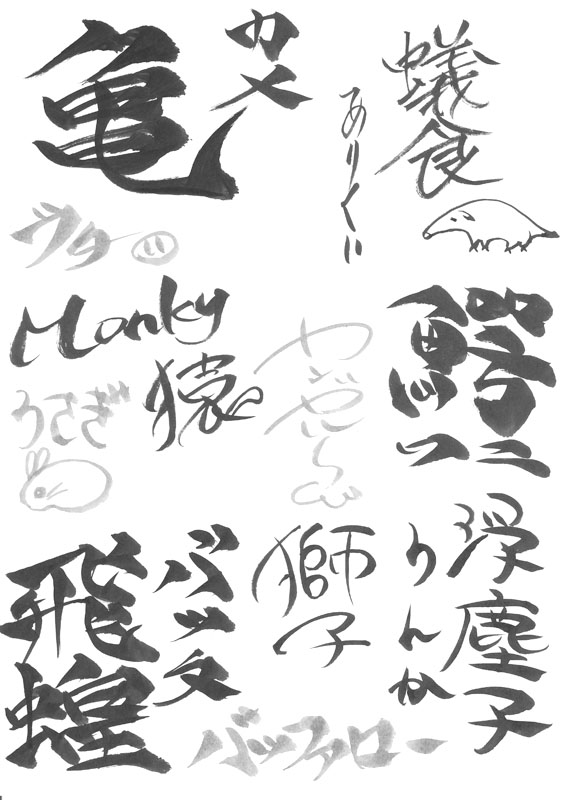 亀
カメ
蟻食
ありくい
ブタ
Monky
猿
鰐
ワニ
うさぎ
浮塵子
うんか
獅子
バッタ
飛蝗
バッファロー